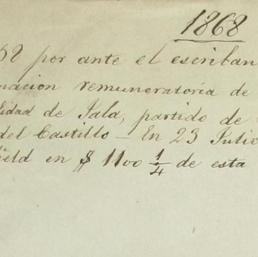 1868
68 por ante el escriban
nacion remuneratoria de
idad de Jala, partido de
del Castillo – En 23 Julio
field en $ 1100 1/4 de esta